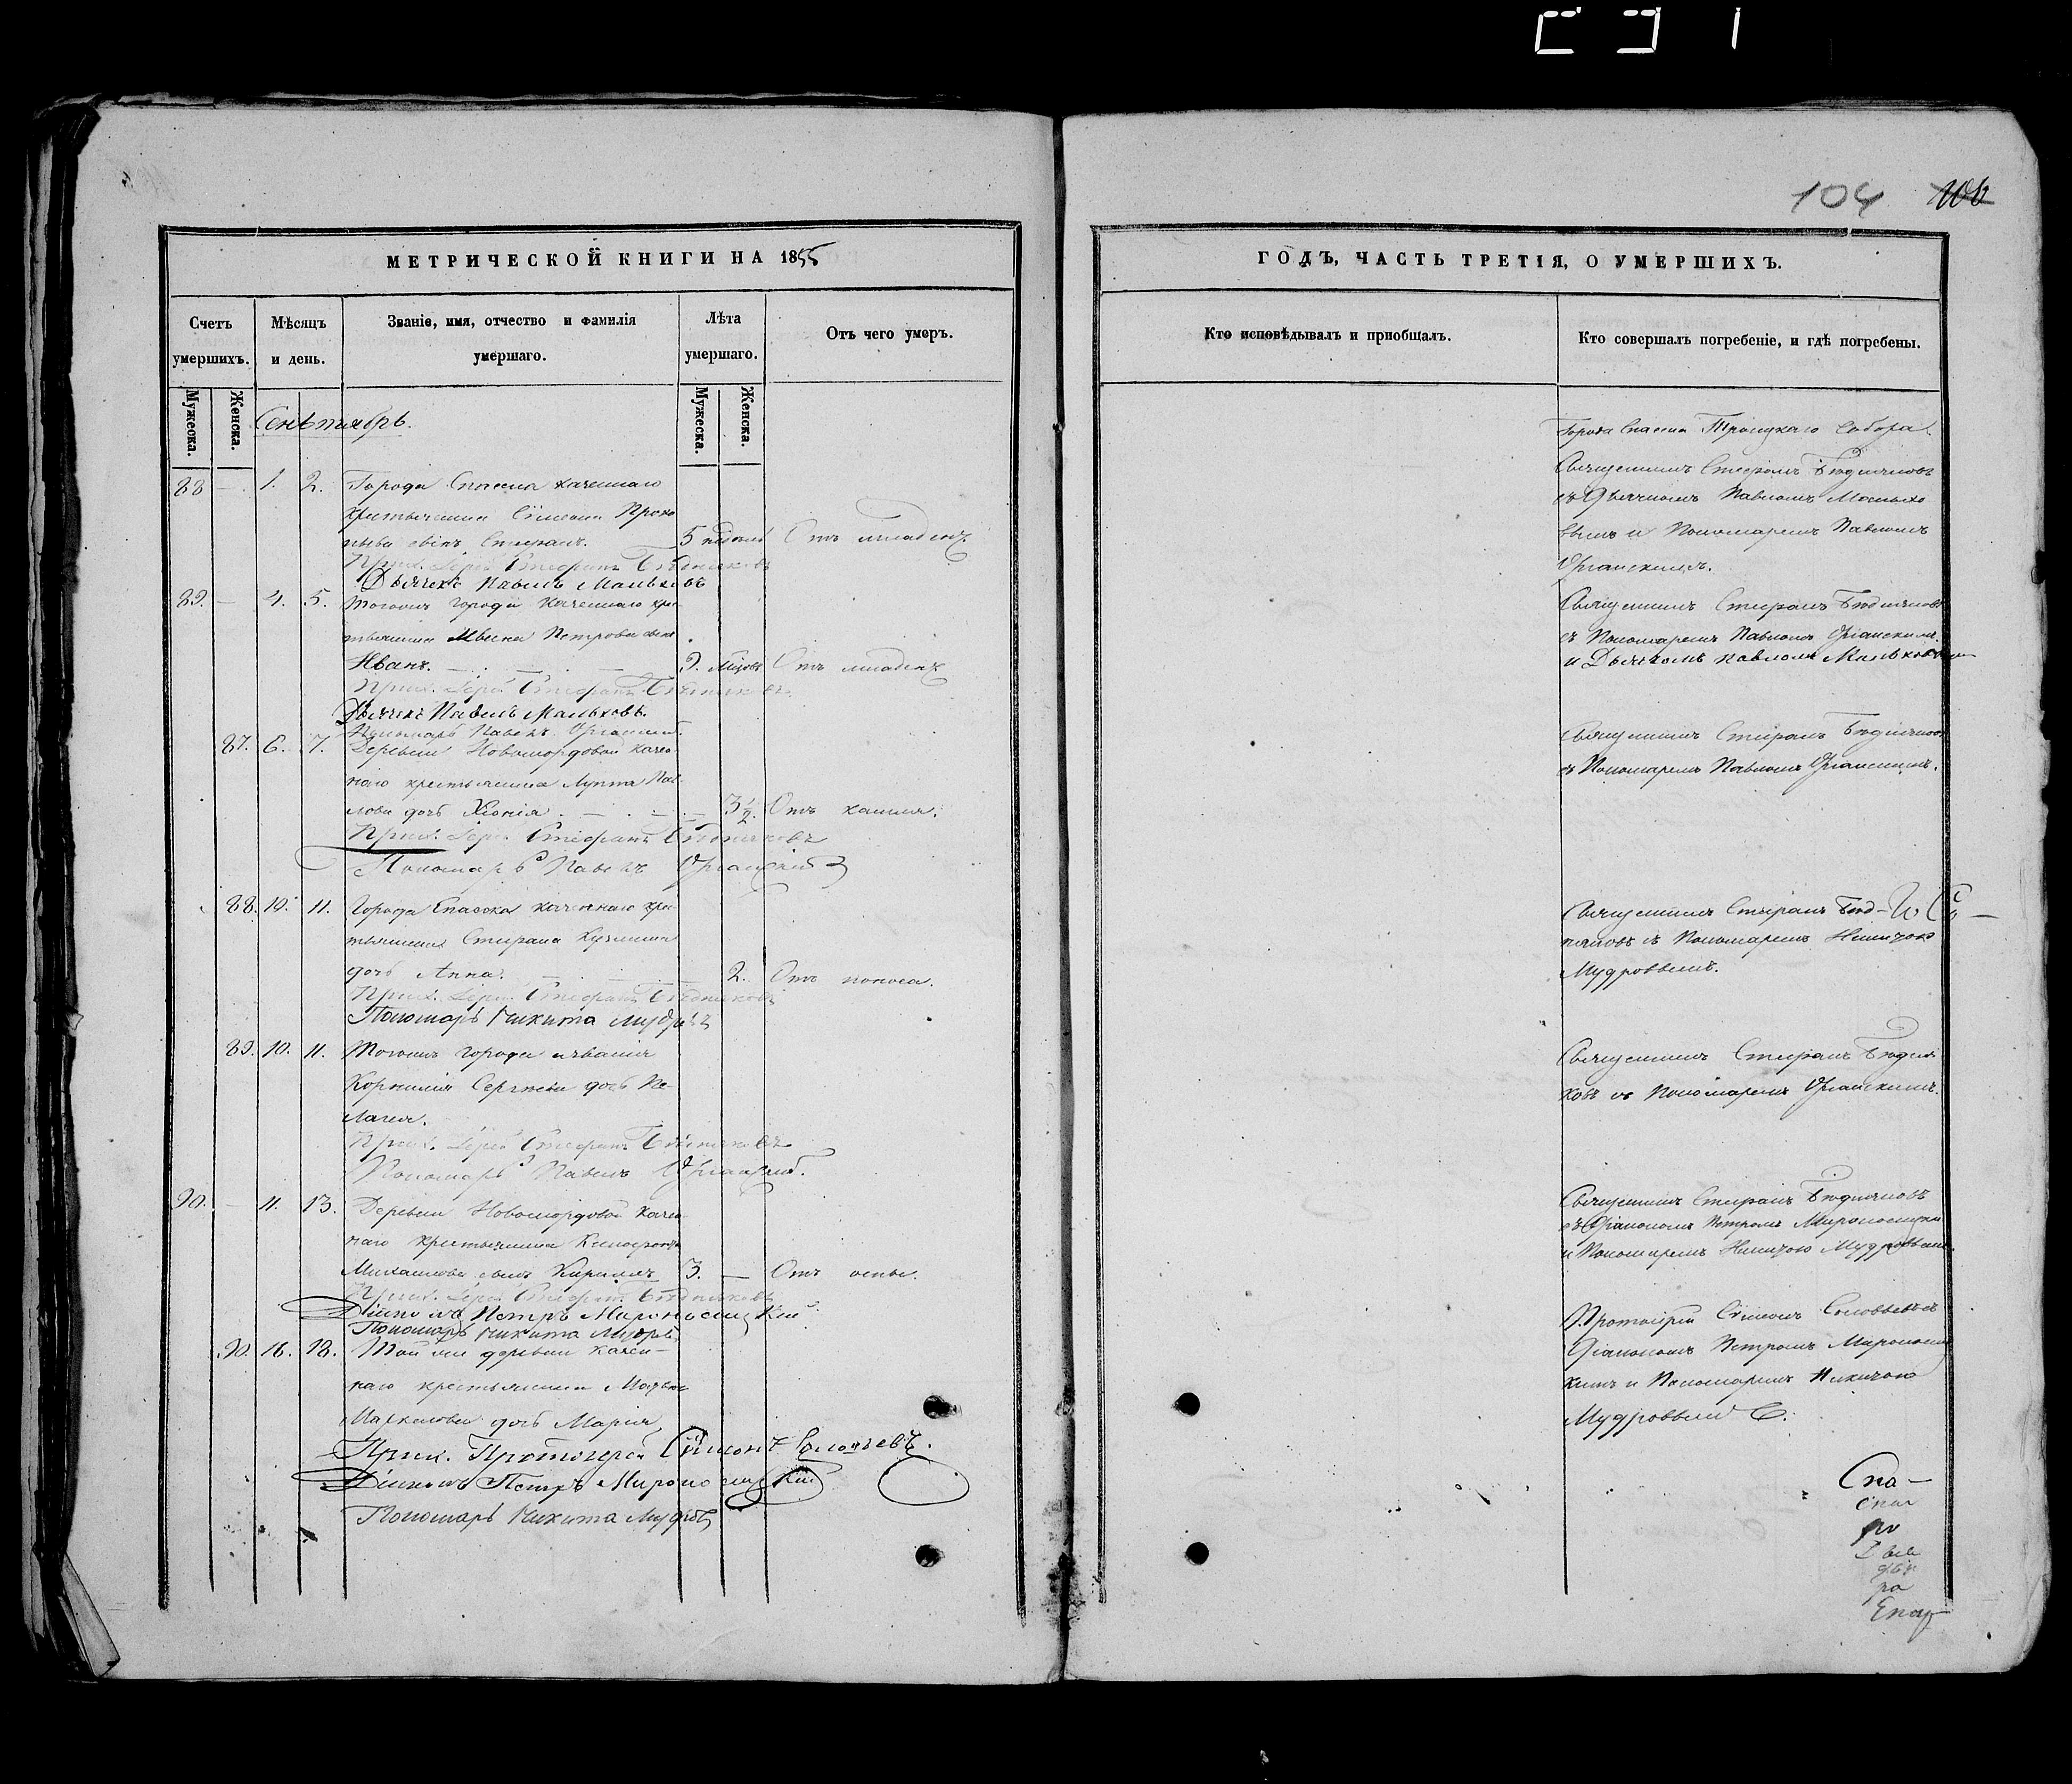 104 106
МЕТРИЧЕСКОЙ КНИГИ НА 1855
Счетъ умершихъ.
Мѣсяцъ и день.
Званіе, имя, отчество и фамилія умершаго.
Лѣта умершаго.
Отъ чего умеръ.
Мужеска. Женска.
Мужеска. Женска.
Сентябрь.
88 — 1. 2. Города Спасска казеннаго
крестьянина Симеона Проко
пьева сынъ Стефанъ. 5 недѣль Отъ младенч.
Прих. Іерей Стефанъ Бѣдняковъ
Дьячекъ Павелъ Мальковъ
89. — 4. 5. Тогожъ города казеннаго кре
тьянина Ивана Петрова сынъ
Иванъ. 9. мѣсяц. Отъ младенч
Прих. Іерей Стефанъ Бѣдняковъ.
Дьячекъ Павелъ Мальковъ.
Пономарь Павелъ
87. 6. 7. Деревни Новомордовой казен
наго крестьянина Луппа Пав
лова дочь Хіонія. 3 1/2. Отъ кашля.
Прих. Іерей Стефанъ Бѣдняковъ
Пономарь Павелъ
88. 10. 11. Города Спасска казеннаго кре
тьянина Стефана Кузмина
дочь Анна. 2. Отъ поноса.
Прих. Іерей Стефанъ Бѣдняковъ
Пономарь Никита Мудровъ
89. 10. 11. Тогожъ города и званія
Корнилія Сергѣева дочь Пе-
лагея.
Прих. Іерей Стефанъ Бѣдняковъ
Пономарь Павелъ
90. — 11. 13. Деревни Новомордовой казен
наго крестьянина
Михаилова сынъ Кириллъ 3. — Отъ оспы.
Прих. Іерей Стефанъ Бѣдняковъ
Діаконъ Петръ Мироносицкій
Пономарь Никита Мудровъ
90. 16. 18. Той же деревни казен-
наго крестьянина
дочь Марія
Прих. Протоіерей Симеонъ Соловьевъ.
Діаконъ Петръ Мироносицкій
Пономарь Никита Мудровъ
ГОДЪ, ЧАСТЬ ТРЕТІЯ, О УМЕРШИХЪ.
Кто исповѣдывалъ и пріобщалъ.
Кто совершалъ погребеніе, и гдѣ погребены.
Города Спасска Троицкаго Собора
Священникъ Стефанъ Бѣдняковъ
съ Дьячкомъ Павломъ Малько
вымъ и Пономаремъ Павломъ
Священникъ Стефанъ Бѣдняковъ
съ Пономаремъ Павломъ
и Дьячкомъ Павломъ Мальковымъ
Священникъ Стефанъ Бѣдняковъ
съ Пономаремъ Павломъ
Священникъ Стефанъ Бѣд-
няковъ съ Пономаремъ Никитою
Мудровымъ.
Священникъ Стефанъ Бѣдня
ковъ съ Пономаремъ
Священникъ Стефанъ Бѣдняковъ
съ Діакономъ Петромъ Мироносицки
и Пономаремъ Никитою Мудровымъ.
Протоіерей Симеонъ Соловьевъ съ
Діакономъ Петромъ Мироносиц
кимъ и Пономаремъ Никитою
Мудровымъ
Спа-
по
ра